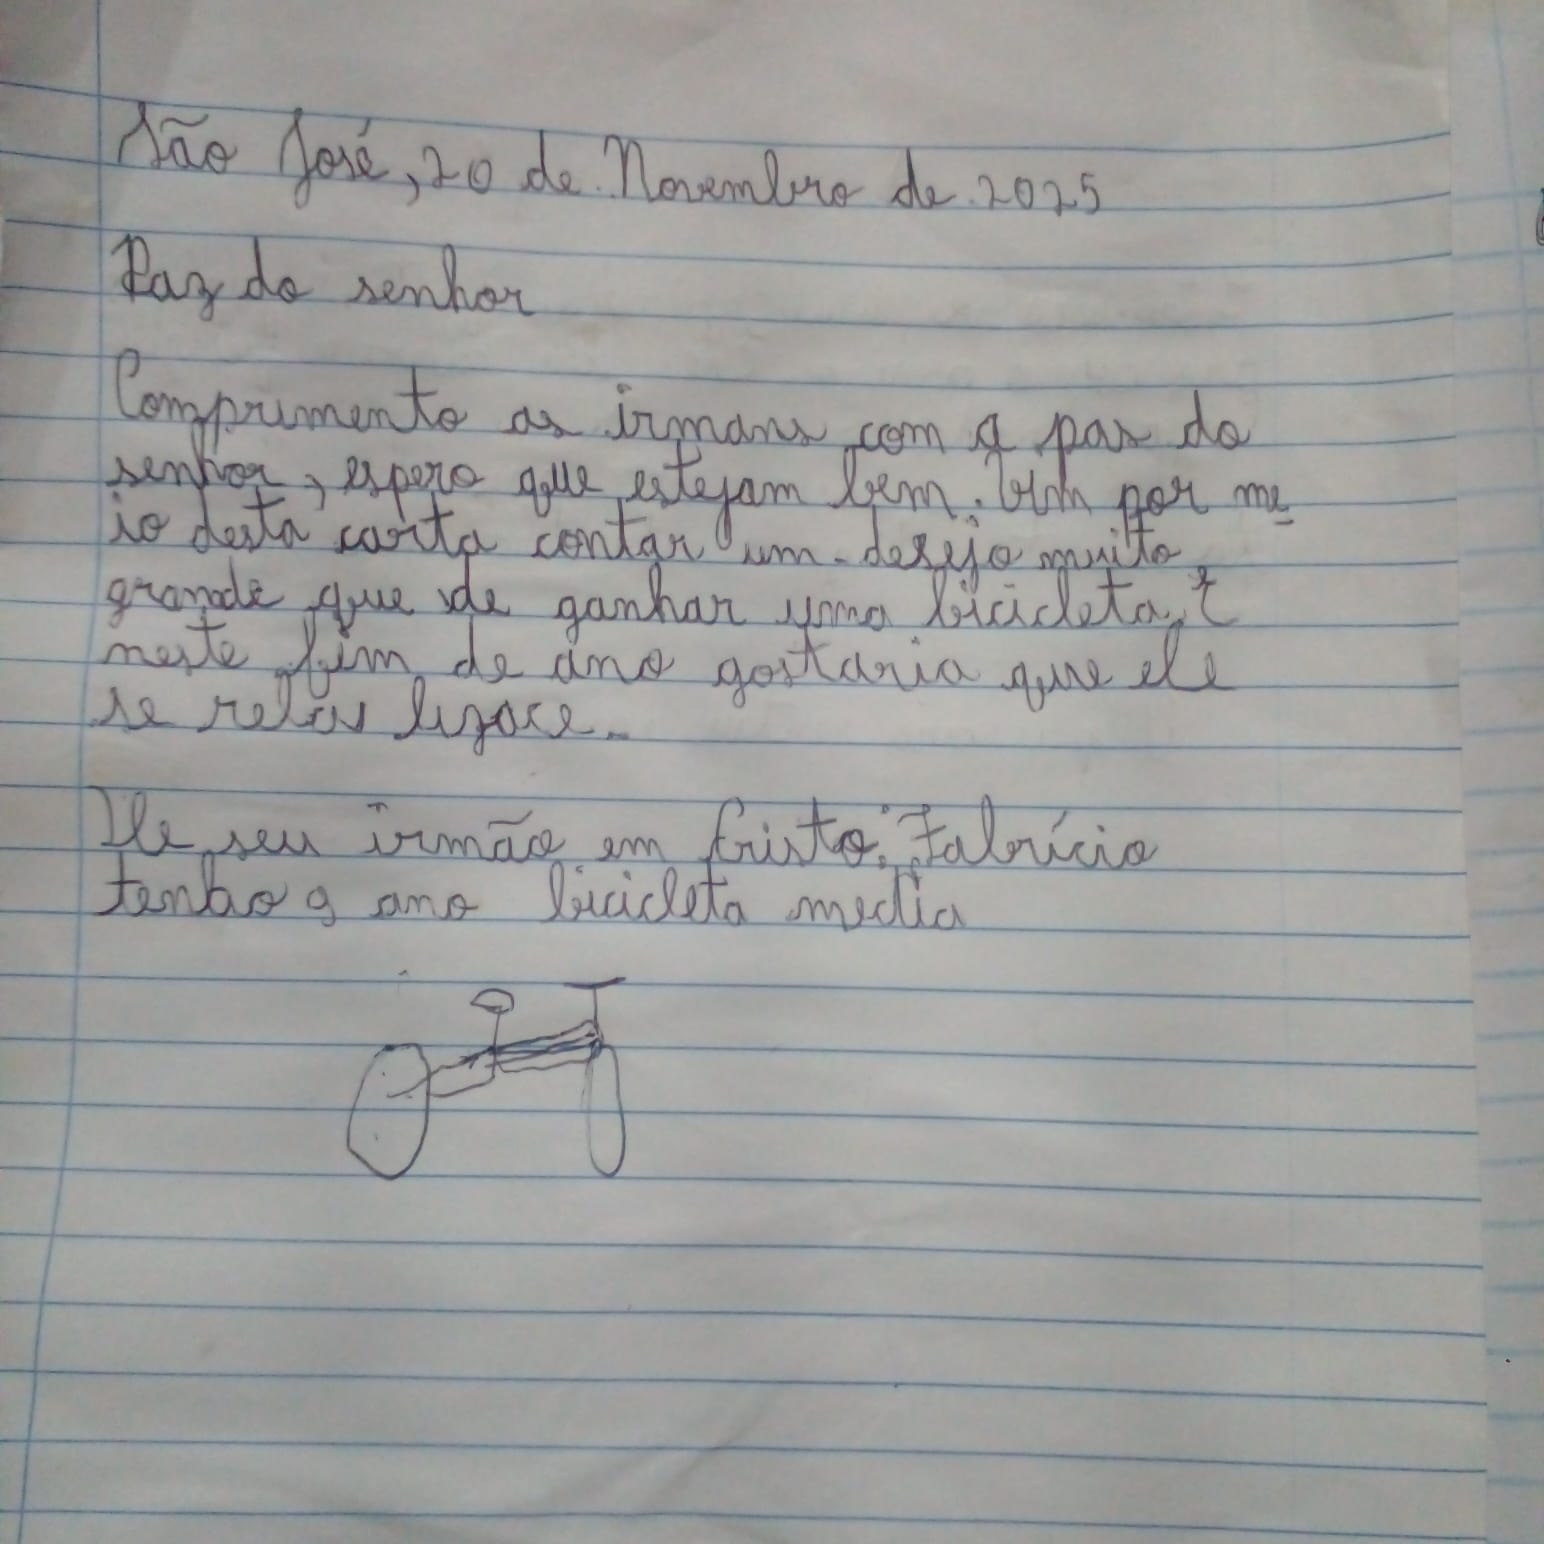 São José, 20 de Novembro de 2025
Paz do senhor
Comprimento as irmans com a pas do
senhor, espero que estejam bem. Vim por me
io desta carta contar um desejo muito
grande que de ganhar uma bicicleta, E
neste fim de ano gostaria que ele
se relas lizace.
De seu irmão em Cristo: Fabrício
tenho 9 ano bicicleta media